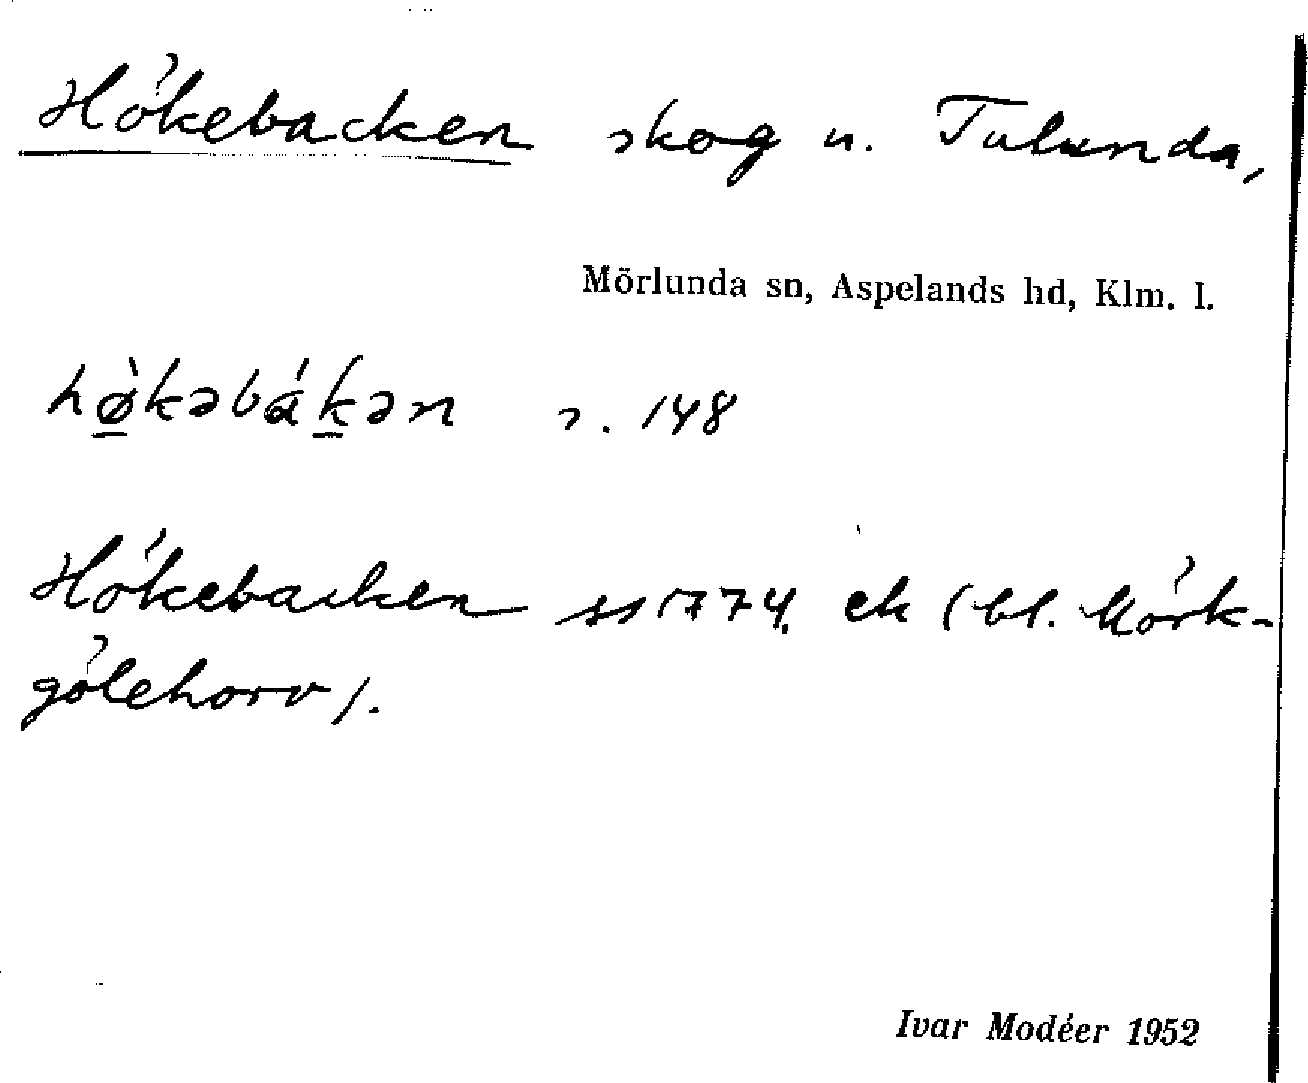 Hökebacken skog u. Tulunda,
Mörlunda sn, Aspelands hd, Klm. l.
hø̀kəbákən s. 148
Hökebacken ss 1774. ek (bl. Mörk-
gölehorv).
Ivar Modéer 1952